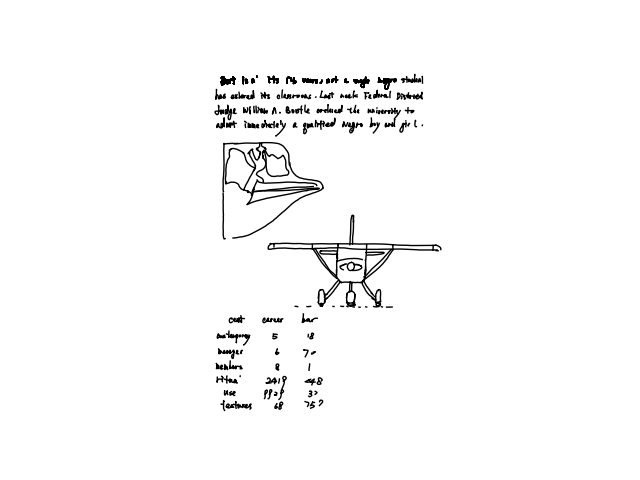 But in its 176 years, not a single Negro student
has entered its classrooms. Last week Federal District
Judge William A. Bootle ordered the university to
admit immediately a qualified Negro boy and girl.
cost career bar
5 18
hunger 6
members 8 1
2419 448
use 9929
features 68 757